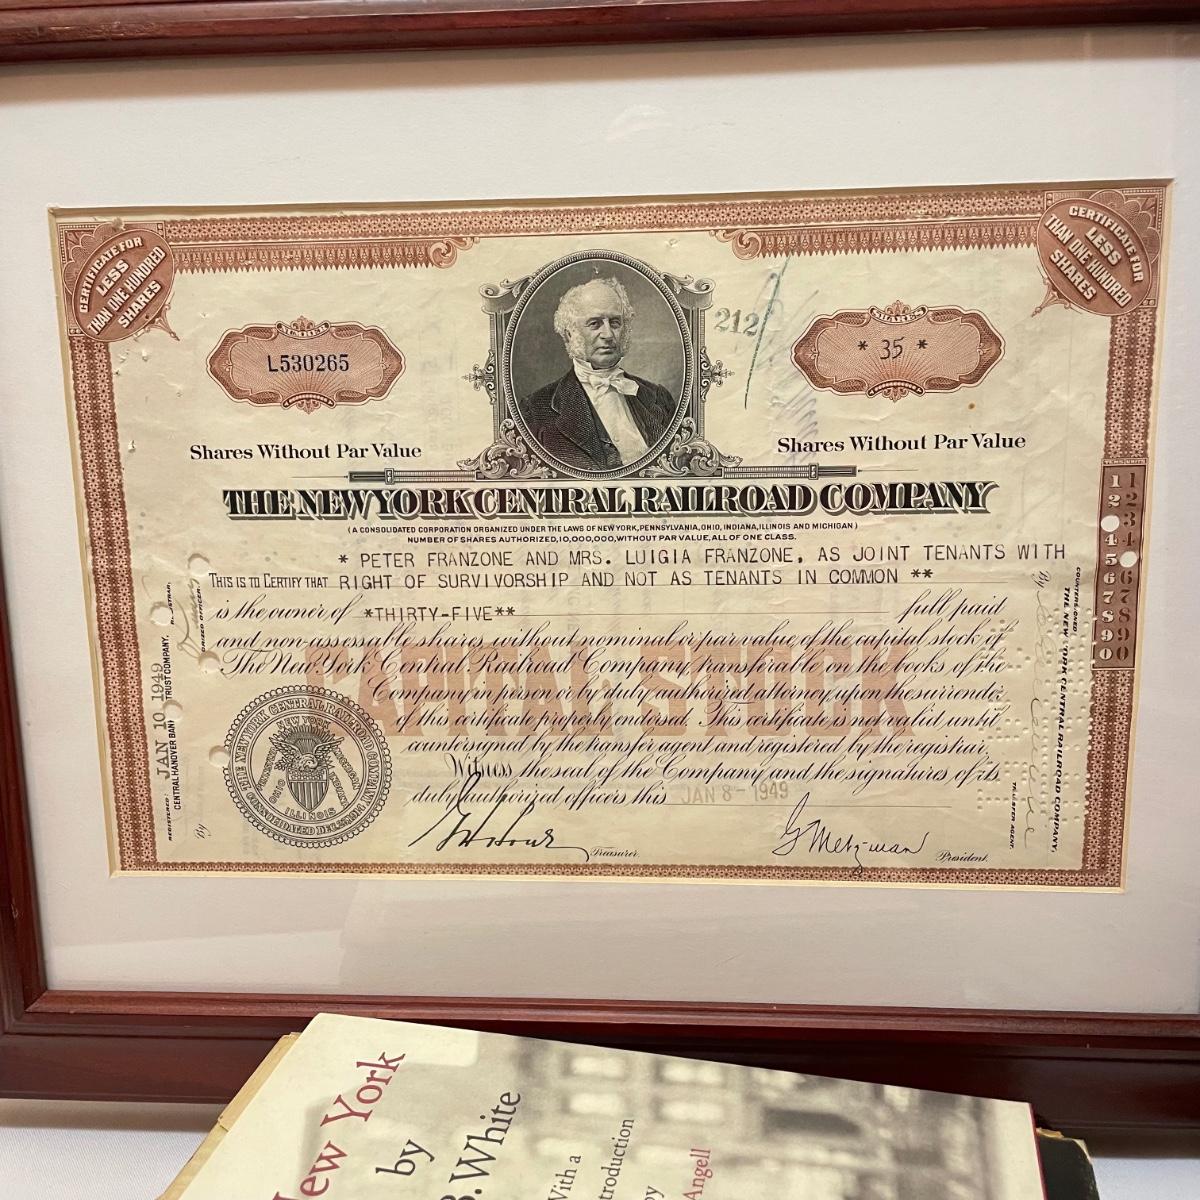 CERTIFICATE FOR
LESS
THAN ONE HUNDRED
SHARES
CERTIFICATE FOR
LESS
THAN ONE HUNDRED
SHARES
NUMBER
L530265
212
SHARES
* 35 *
Shares Without Par Value
Shares Without Par Value
THE NEW YORK CENTRAL RAILROAD COMPANY
(A CONSOLIDATED CORPORATION ORGANIZED UNDER THE LAWS OF NEW YORK, PENNSYLVANIA, OHIO, INDIANA, ILLINOIS AND MICHIGAN)
NUMBER OF SHARES AUTHORIZED, 10,000,000, WITHOUT PAR VALUE, ALL OF ONE CLASS.
* PETER FRANZONE AND MRS. LUIGIA FRANZONE, AS JOINT TENANTS WITH
THIS IS TO CERTIFY THAT RIGHT OF SURVIVORSHIP AND NOT AS TENANTS IN COMMON **
is the owner of *THIRTY-FIVE** full paid
and non-assessable shares without nominal or par value of the capital stock of
The New York Central Railroad Company, transferable on the books of the
Company in person or by duly authorized attorney upon the surrender
of this certificate properly endorsed. This certificate is not valid until
countersigned by the transfer agent and registered by the registrar.
Witness the seal of the Company and the signatures of its
duly authorized officers this JAN 8 - 1949
CAPITAL STOCK
Treasurer.
G Metzman
President.
REGISTERED: JAN 10 1949
CENTRAL HANOVER BANK TRUST COMPANY,
By
THE NEW YORK CENTRAL RAILROAD COMPANY
NEW YORK
OHIO
ILLINOIS
COUNTERSIGNED
THE NEW YORK CENTRAL RAILROAD COMPANY,
By
1 1
2 2
3
4 4
5
6 6
7 7
8 8
9 9
0 0
New York
by
B. White
With a
Angell